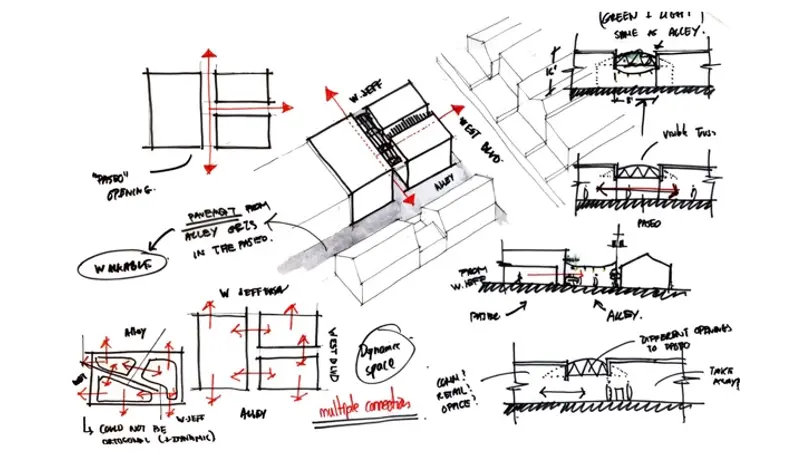 "PASEO"
OPENING.
PAVEMENT FROM
ALLEY GETS
IN THE PASEO.
WALKABLE
W. JEFF
WEST BLVD.
ALLEY
(GREEN + LIGHT)
SAME AS ALLEY.
16'
8'
VISIBLE TRUSS
PASEO
FROM
W. JEFF
PASEO
ALLEY.
DIFFERENT OPENINGS
TO PASEO
CONN?
RETAIL?
OFFICE?
TAKE
ALLEY
ALLEY
WEST
W. JEFF
COULD NOT BE
ORTOGONAL (+DYNAMIC)
W JEFFERSON
WEST BLVD
ALLEY
Dynamic
space
multiple connections